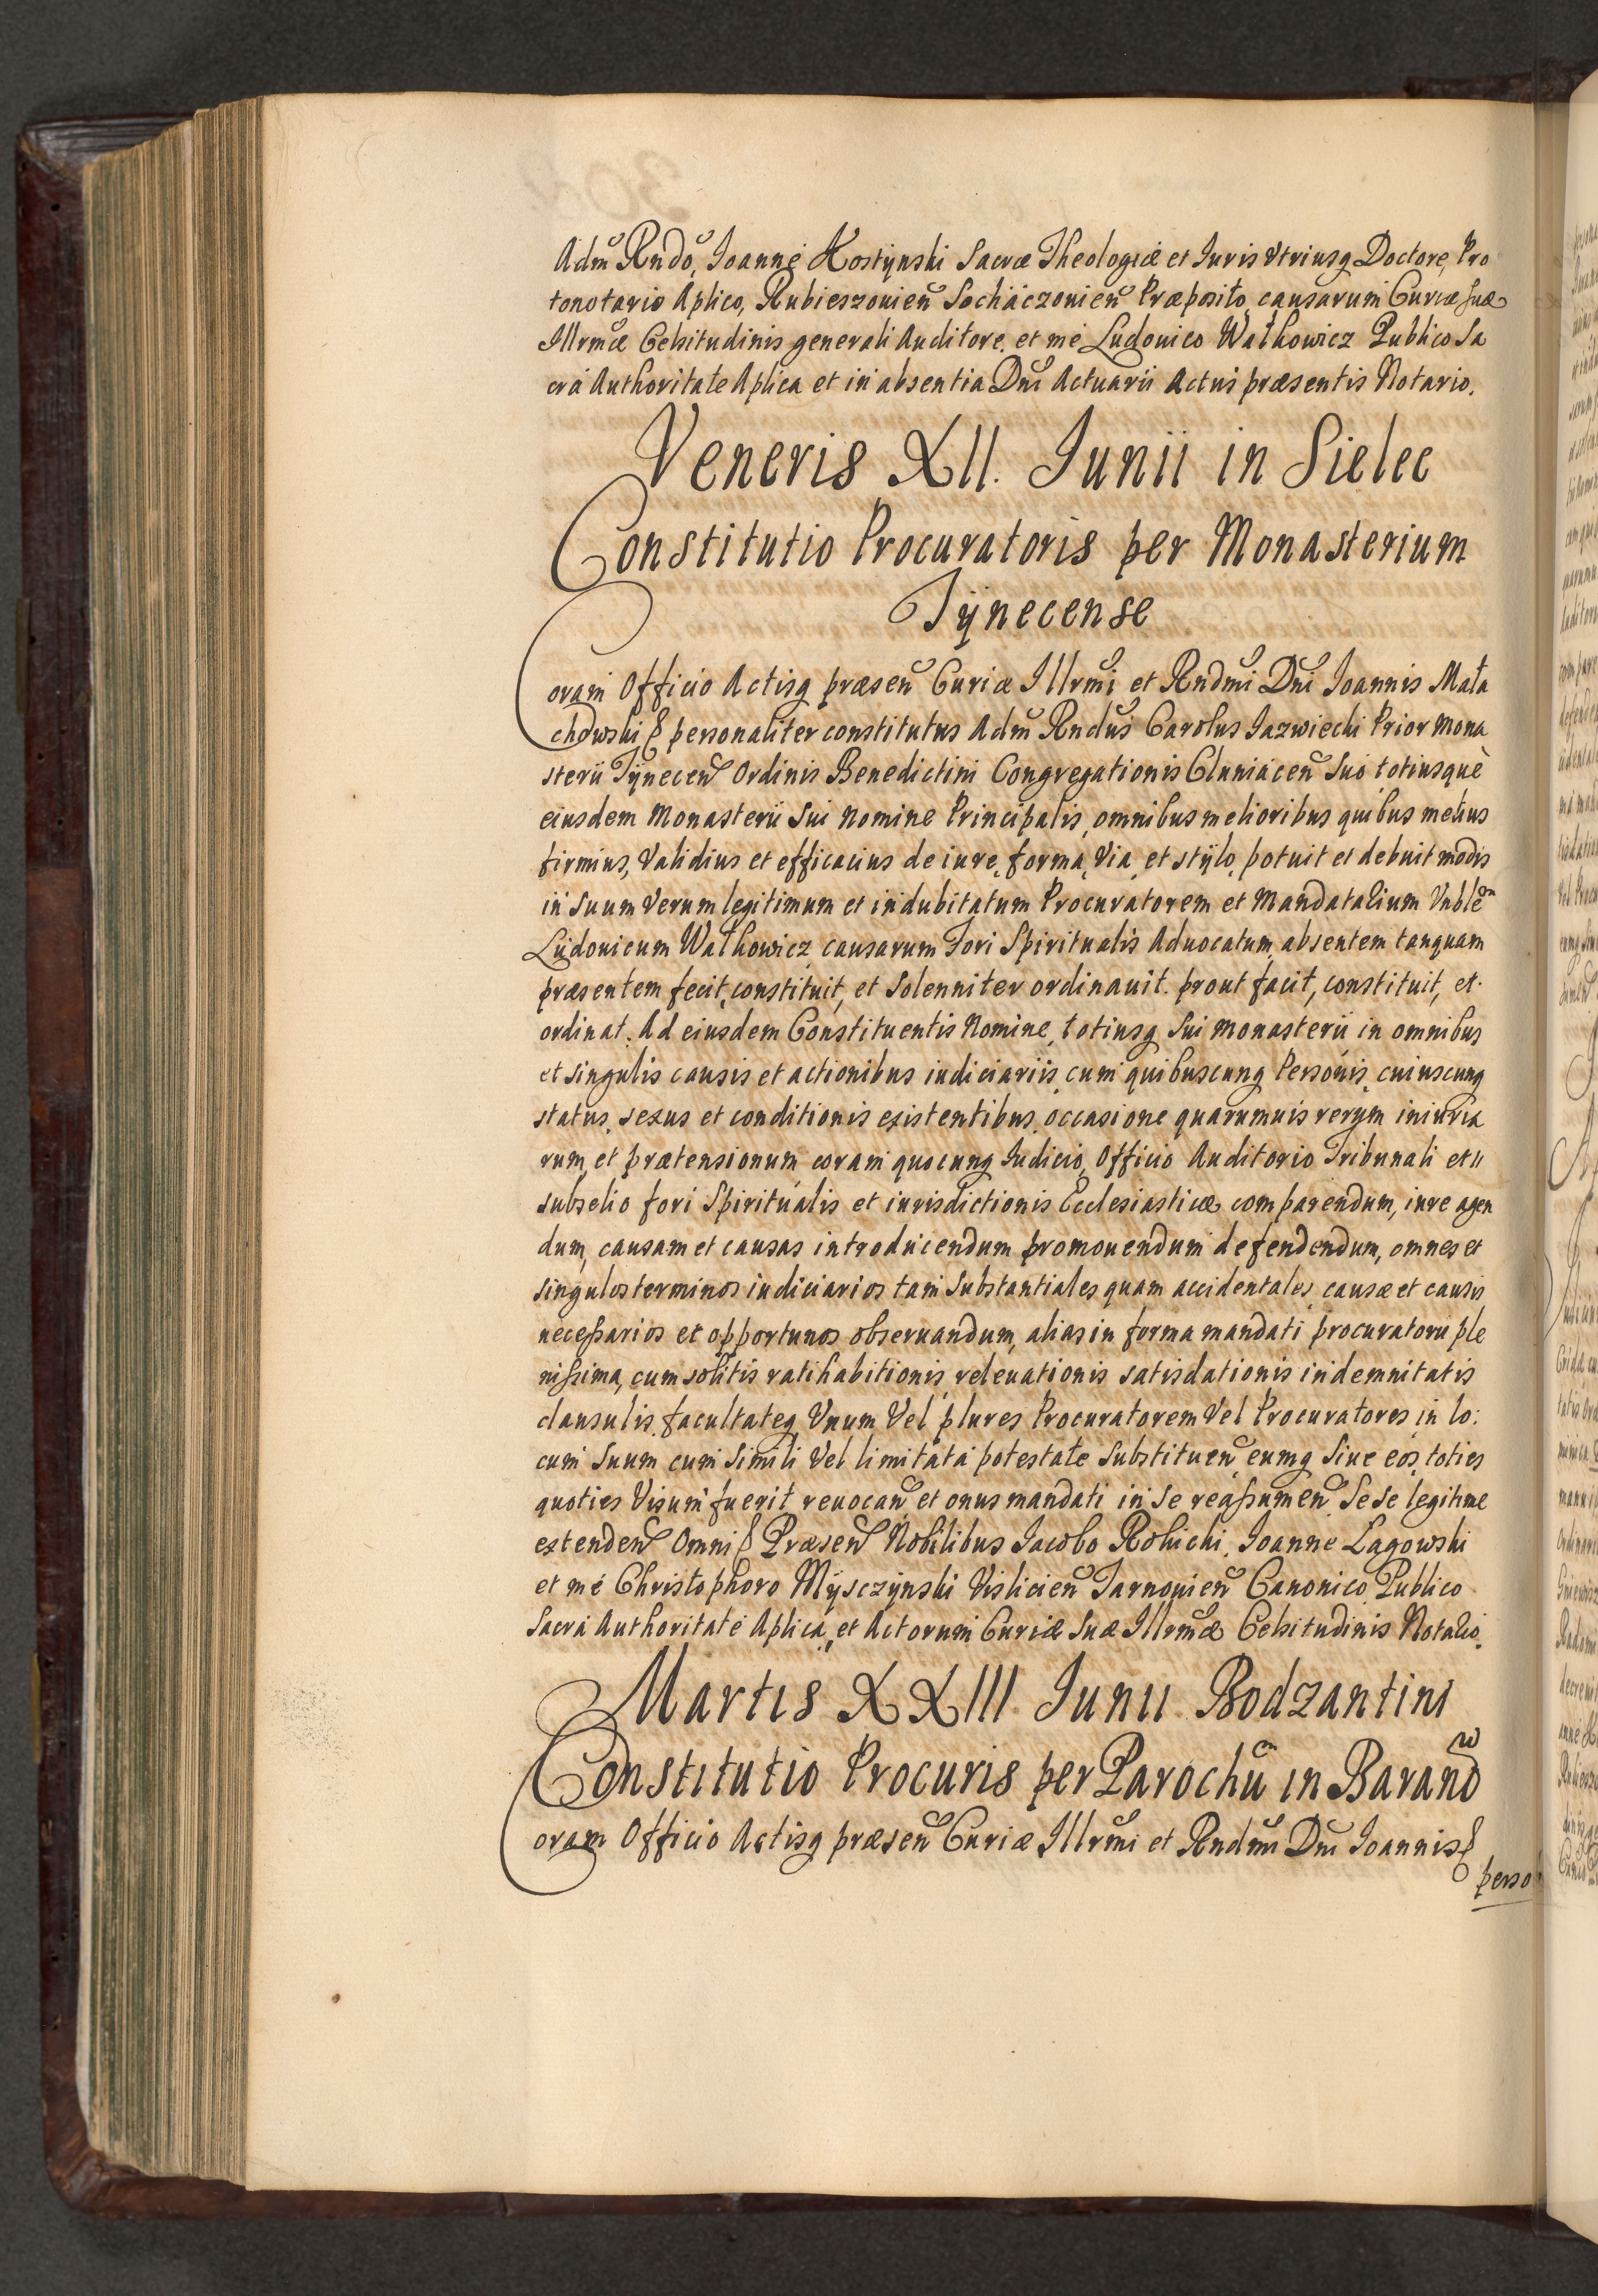 Adm̃ Rndo, Joanne Kostynski Sacræ Theologiæ et Iuris Vtriusq Doctore, Pro
tonotario Aplico, Rubieszouień Sochaczouień Præposito causarum Curiæ suæ
Illrmæ Celsitudinis generali Auditore, et me Ludouico Wałkowicz Publico Sa
cra Authoritate Aplica et in absentia Dni Actuarii Actus præsentis Notario.
Veneris XII. Junii in Sielec
Constitutio Procuratoris per Monasterium
Tÿnecense
Coram Officio Actisq præseñ Curiæ Illrmi et Rndmi Dni Joannis Mała
chowski personaliter constitutus Adm̃ Rndus Carolus Jazwiecki Prior Mona
sterii Tÿneceñ Ordinis Benedictini Congregationis Cluniaceñ suo totiusque
eiusdem Monasterii sui Nomine Principalis, omnibus melioribus quibus melius
firmius, Validius et efficacius de iure, forma, Via, et stÿlo, potuit et debuit modis
in suum Verum legitimum et indubitatum Procuratorem et Mandatarium Vnblem
Ludouicum Wałkowicz causarum Fori Spiritualis Aduocatum absentem tanquam
præsentem fecit, constituit, et Solenniter ordinauit. prout facit, constituit, et
ordinat. Ad eiusdem Constituentis Nomine, totiusq sui Monasterii in omnibus
et singulis causis et actionibus iudiciariis cum quibuscunq Personis, cuiuscunq
status, sexus et conditionis existentibus, occasione quarumuis rerum iniuria
rum, et prætensionum coram quocunq Iudicio, Officio Auditorio Tribunali et
subselio fori Spiritualis et iurisdictionis Ecclesiasticæ comparendum, iure agen
dum, causam et causas introducendum promouendum defendendum, omnes et
singulos terminos iudiciarios tam substantiales quam accidentales causæ et causis
necessarios et opportunos obseruandum, alias in forma mandati procuratorii ple
nissima, cum solitis ratihabitionis, releuationis satisdationis indemnitatis
clausulis, facultateq Vnum Vel plures Procuratorem Vel Procuratores in lo:
cum suum cum simili Vel limitata potestate substitueñ eumq siue eos, toties
quoties Visum fuerit reuocañ et onus mandati in se reassumeñ Sese legitime
extendeñ Omni Præseñ Nobilibus Jacobo Rolicki, Joanne Lagowski
et me Christophoro Mÿsczÿnski Vislicień Tarnouień Canonico Publico
Sacra Authoritate Aplica, et Actorum Curiæ Suæ Illrmæ Celsitudinis Notario.
Martis XXIII Junii Bodzantini
Constitutio Procuris per Parochũ in Baranow
Coram Officio Actisq præseñ Curiæ Illrmi et Rndmi Dni Joannis
perso